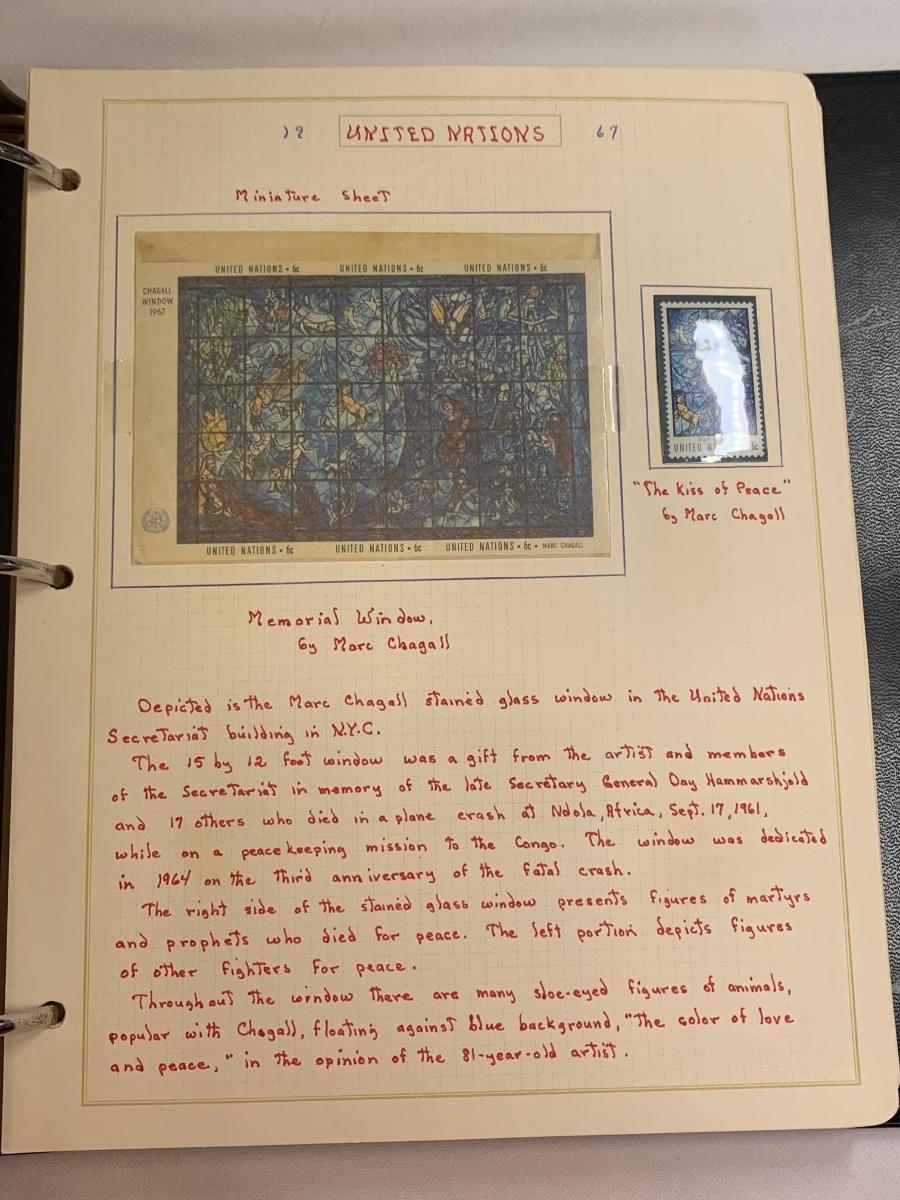 19 UNITED NATIONS 67
Miniature Sheet
UNITED NATIONS • 6c UNITED NATIONS • 6c UNITED NATIONS • 6c
CHAGALL
WINDOW
1967
UNITED NATIONS • 6c UNITED NATIONS • 6c UNITED NATIONS • 6c • MARC CHAGALL
UNITED 6c
"The Kiss of Peace"
by Marc Chagall
Memorial Window,
by Marc Chagall
Depicted is the Marc Chagall stained glass window in the United Nations
Secretariat building in N.Y.C.
The 15 by 12 foot window was a gift from the artist and members
of the Secretariat in memory of the late Secretary General Day Hammarshjold
and 17 others who died in a plane crash at Ndola, Africa, Sept. 17, 1961,
while on a peace keeping mission to the Congo. The window was dedicated
in 1964 on the third anniversary of the fatal crash.
The right side of the stained glass window presents figures of martyrs
and prophets who died for peace. The left portion depicts figures
of other fighters for peace.
Through out the window there are many sloe-eyed figures of animals,
popular with Chagall, floating against blue background, "the color of love
and peace," in the opinion of the 81-year-old artist.